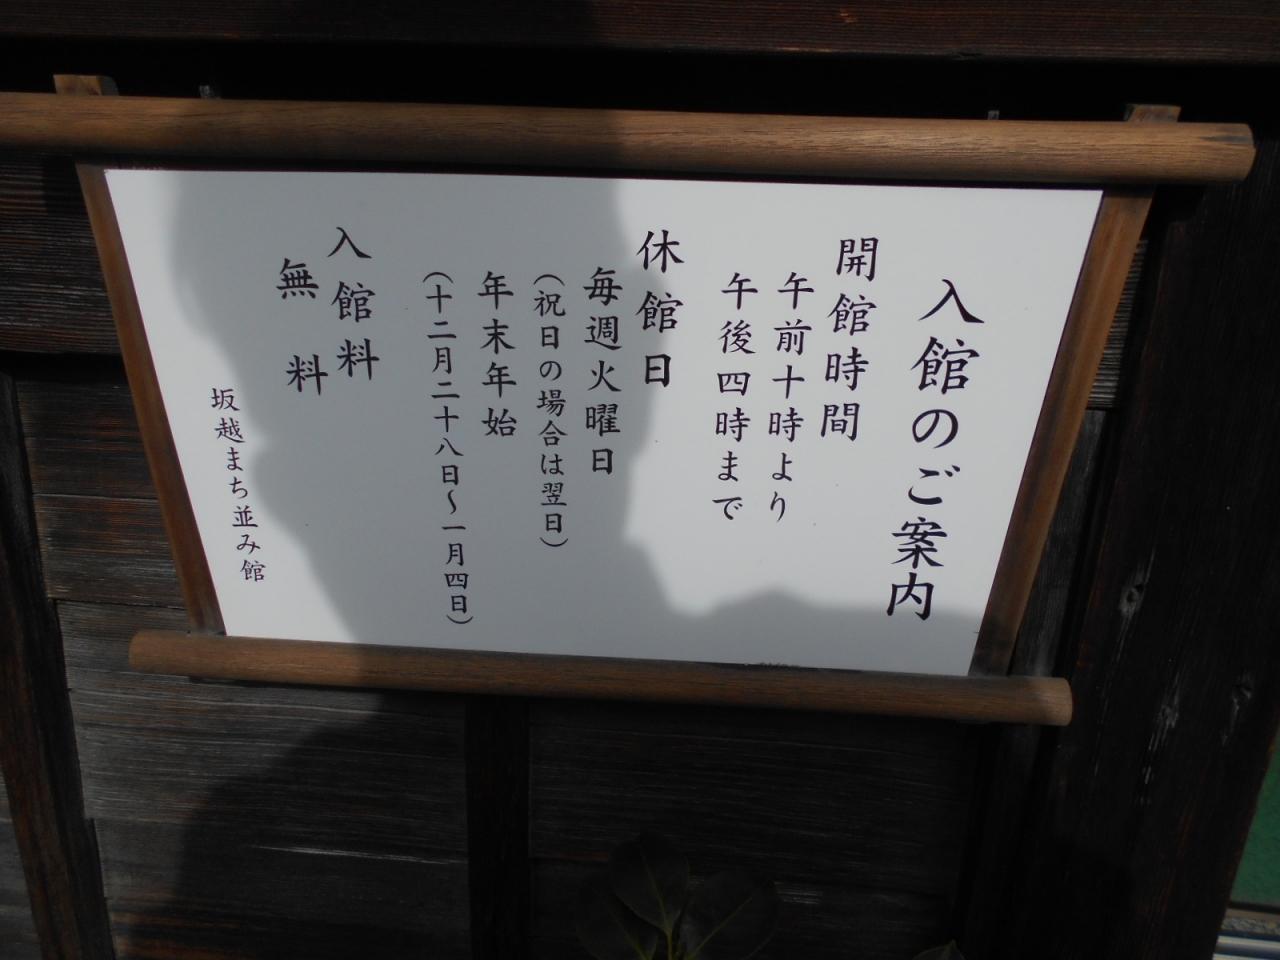 入館のご案内
開館時間
午前十時より
午後四時まで
休館日
毎週火曜日
(祝日の場合は翌日)
年末年始
(十二月二十八日~一月四日)
入館料
無料
坂越まち並み館